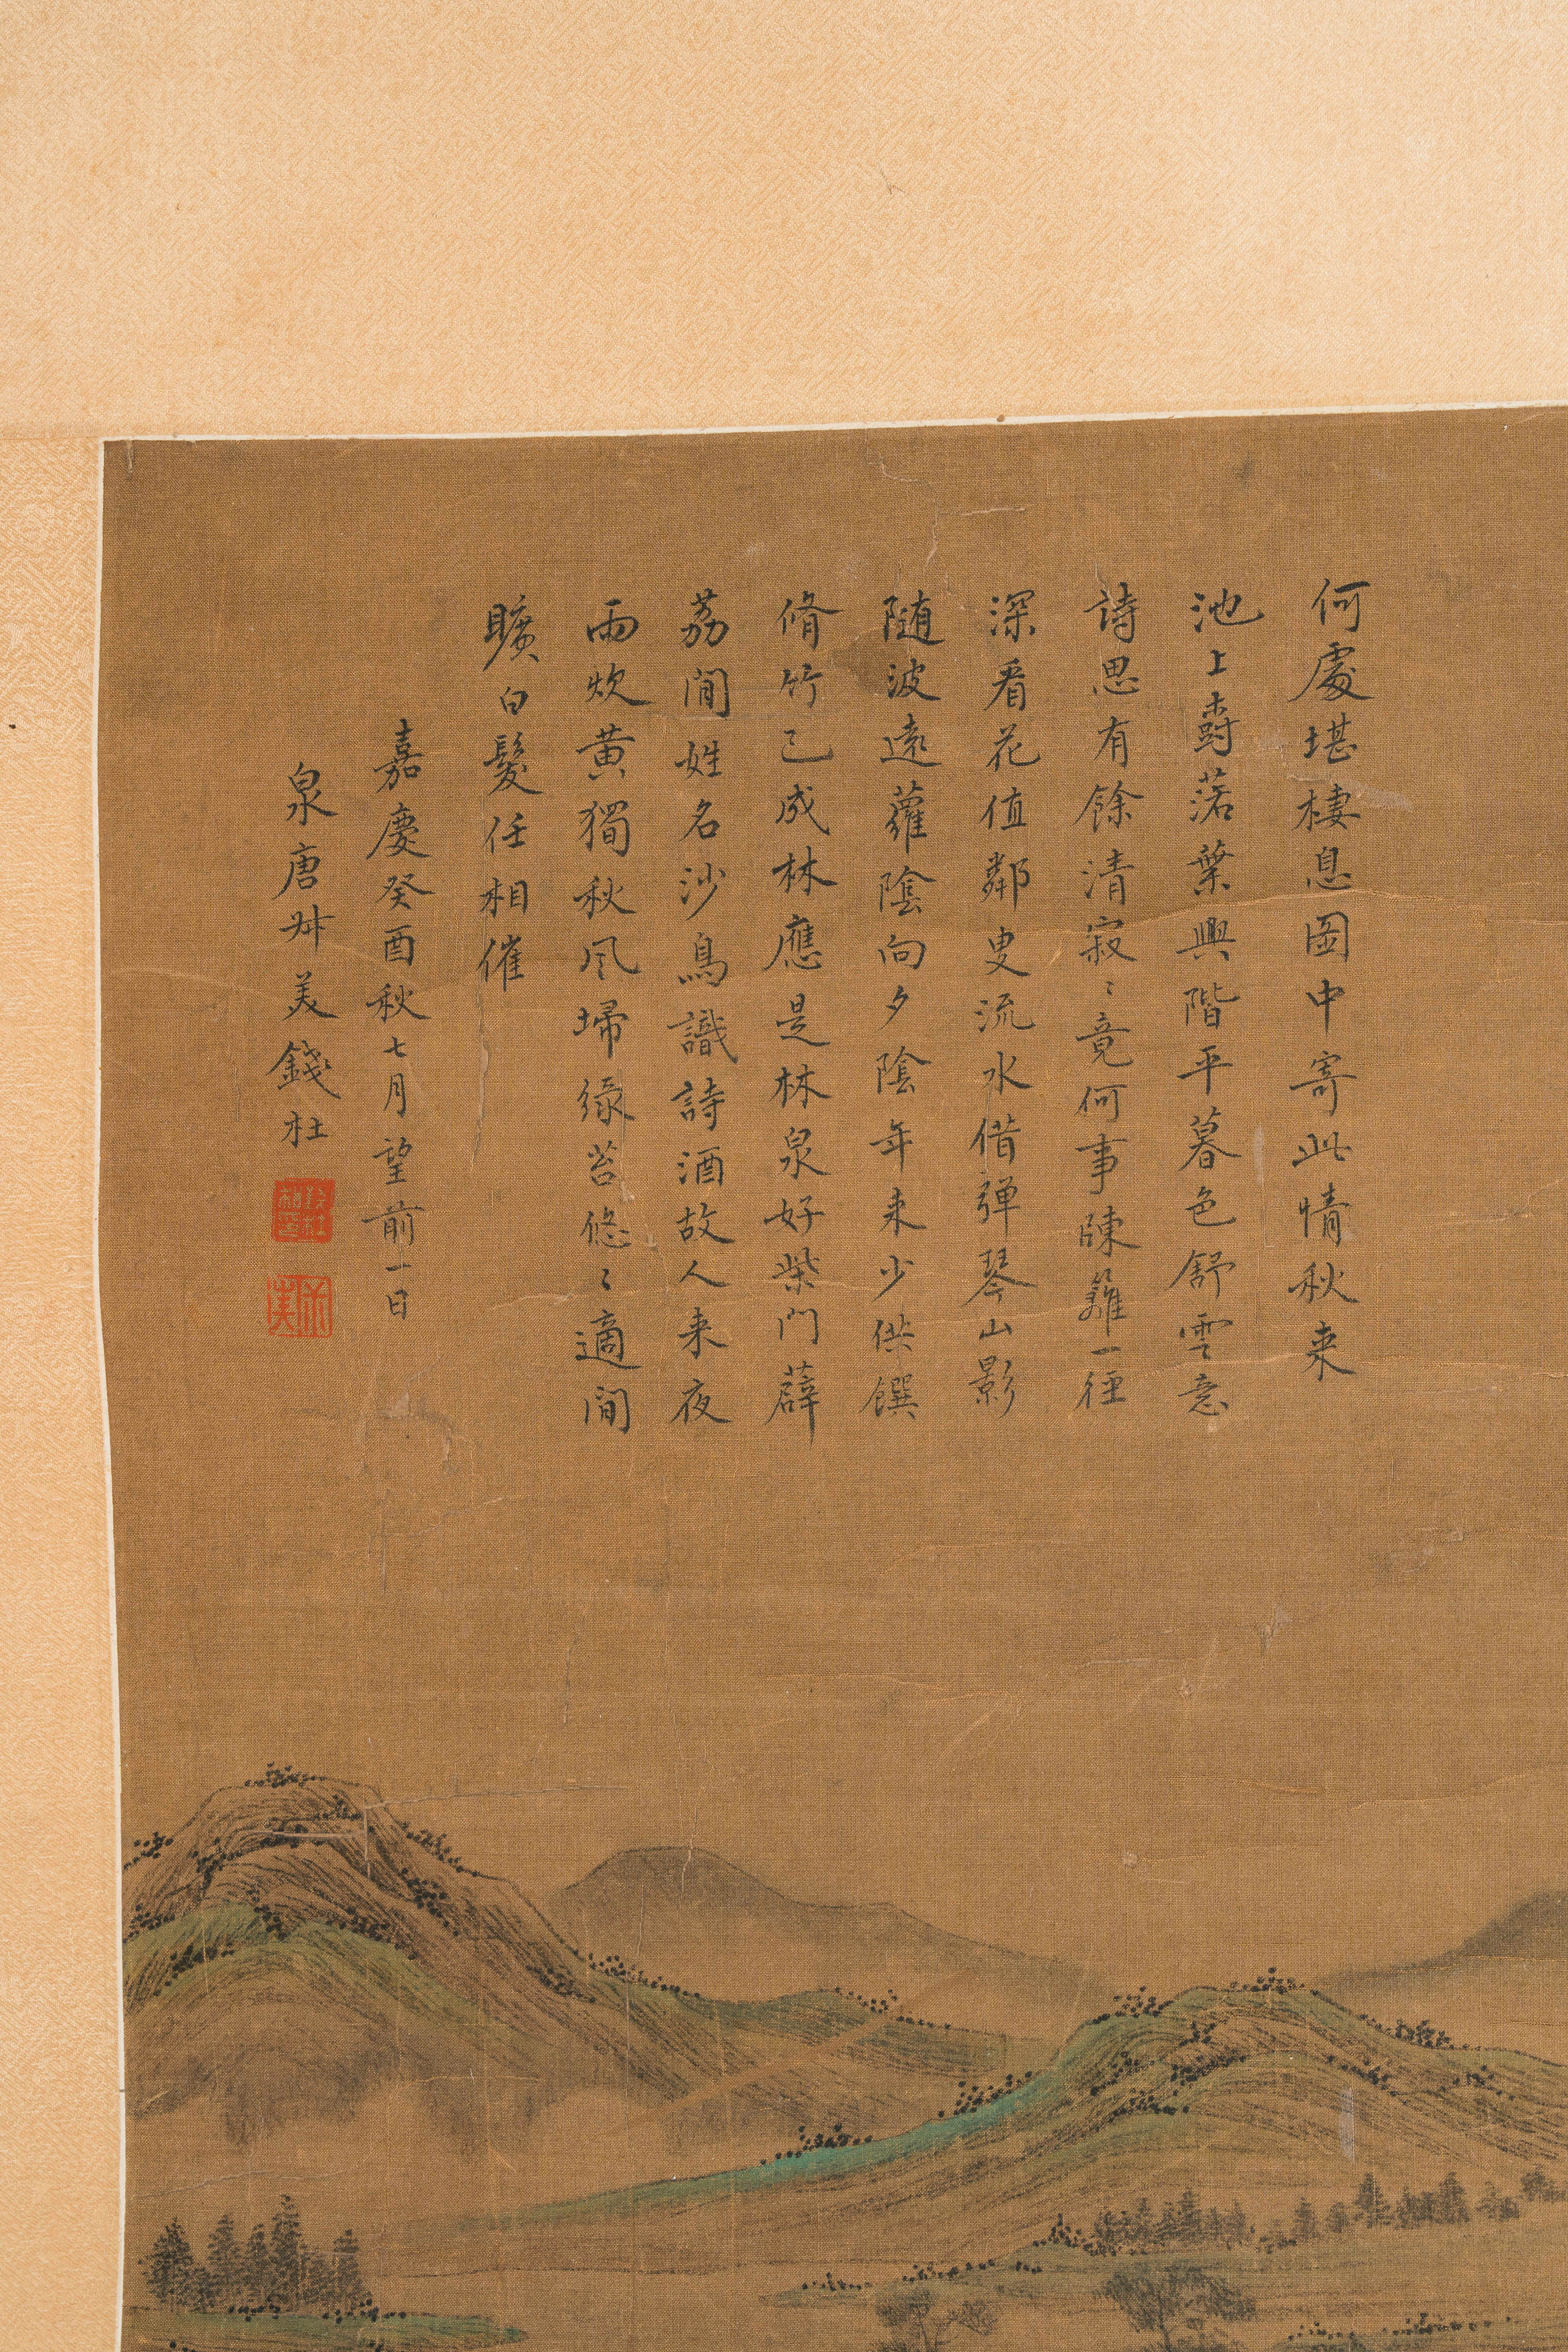 何處堪棲息图中寄此情秋来
池上㪺落葉與階平暮色舒雲意
詩思有餘清寂〻竟何事踈籬一徑
深看花值鄰叟流水借弹琴山影
随波遠蘿陰向夕陰年来少供饌
脩竹已成林應是林泉好柴門薜
荔閒姓名沙鳥識詩酒故人来夜
雨炊黄獨秋风埽緑苔悠〻適閒
曠白髮任相催
嘉慶癸酉秋七月望前一日
泉唐叔美錢杜
錢杜
叔美